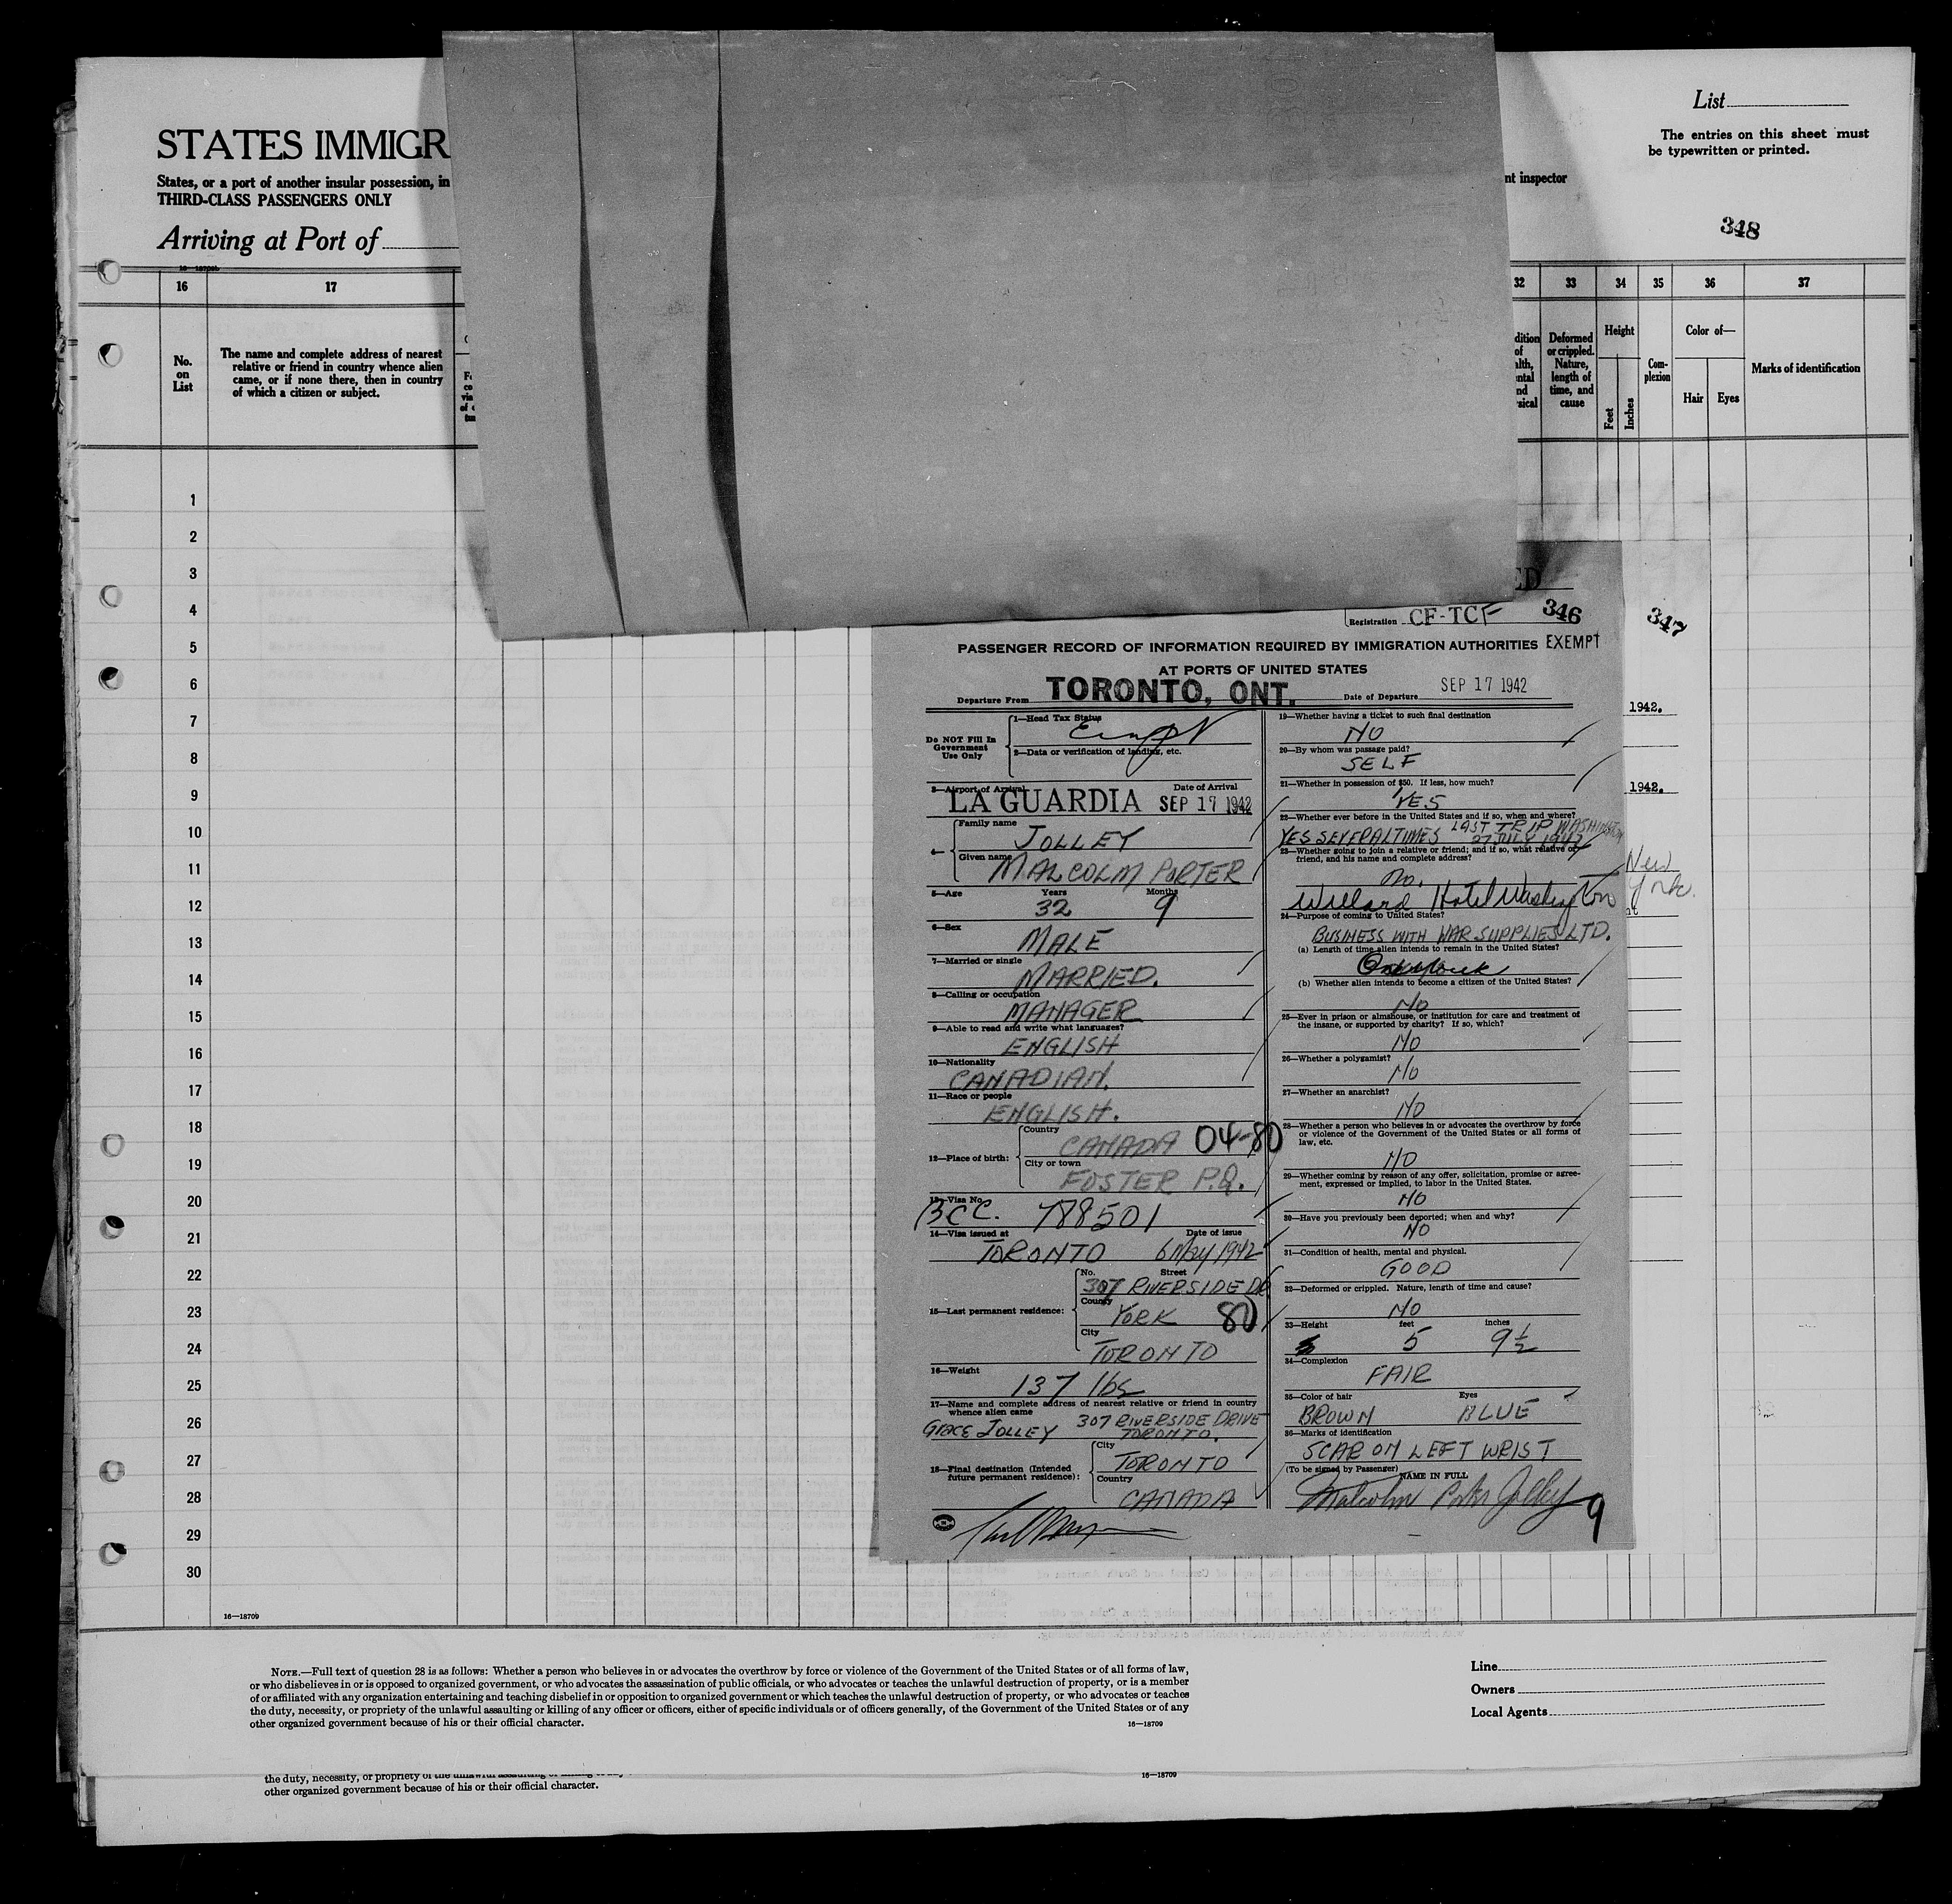 List
The entries on this sheet must
be typewritten or printed.
STATES IMMIGR
States, or a port of another insular possession, in
THIRD-CLASS PASSENGERS ONLY
nt inspector
Arriving at Port of
348
16 17 32 33 34 35 36 37
No.
on
List
The name and complete address of nearest
relative or friend in country whence alien
came, or if none there, then in country
of which a citizen or subject.
Deformed
or crippled.
Nature,
length of
time, and
cause
Height
Feet
Inches
Com-
plexion
Color of—
Hair Eyes
Marks of identification
1
2
3
4
5
6
7
8
9
10
11
12
13
14
15
16
17
18
19
20
21
22
23
24
25
26
27
28
29
30
16—18709
ED
346
347
Registration CF-TCF
PASSENGER RECORD OF INFORMATION REQUIRED BY IMMIGRATION AUTHORITIES EXEMPT
AT PORTS OF UNITED STATES
Departure From TORONTO, ONT. Date of Departure SEP 17 1942
Do NOT Fill In
Government
Use Only
1—Head Tax Status
2—Data or verification of landing, etc.
3—Airport of Arrival Date of Arrival
LA GUARDIA SEP 17 1942
4— Family name
JOLLEY
Given name
MALCOLM PORTER
5—Age Years Months
32 9
6—Sex
MALE
7—Married or single
MARRIED.
8—Calling or occupation
MANAGER
9—Able to read and write what languages?
ENGLISH
10—Nationality
CANADIAN.
11—Race or people
ENGLISH.
12—Place of birth:
Country
CANADA 04-80
City or town
FOSTER P.Q.
13—Visa No.
BCC. 788501
14—Visa issued at Date of issue
TORONTO 6 May 1942
15—Last permanent residence:
No. Street
307 RIVERSIDE DR
County
YORK 80
City
TORONTO
16—Weight
137 lbs
17—Name and complete address of nearest relative or friend in country
whence alien came
GRACE JOLLEY 307 RIVERSIDE DRIVE
TORONTO.
18—Final destination (Intended
future permanent residence):
City
TORONTO
Country
CANADA
19—Whether having a ticket to such final destination
NO
20—By whom was passage paid?
SELF
21—Whether in possession of $50. If less, how much?
YES
22—Whether ever before in the United States and if so, when and where?
YES SEVERAL TIMES LAST TRIP WASHINGTON
27 JULY 1942
23—Whether going to join a relative or friend; and if so, what relative or
friend, and his name and complete address?
no.
Willard Hotel Washington
24—Purpose of coming to United States?
BUSINESS WITH WAR SUPPLIES LTD.
(a) Length of time alien intends to remain in the United States?
One week
(b) Whether alien intends to become a citizen of the United States?
NO
25—Ever in prison or almshouse, or institution for care and treatment of
the insane, or supported by charity? If so, which?
NO
26—Whether a polygamist?
NO
27—Whether an anarchist?
NO
28—Whether a person who believes in or advocates the overthrow by force
or violence of the Government of the United States or all forms of
law, etc.
NO
29—Whether coming by reason of any offer, solicitation, promise or agree-
ment, expressed or implied, to labor in the United States.
NO
30—Have you previously been deported; when and why?
NO
31—Condition of health, mental and physical.
GOOD
32—Deformed or crippled. Nature, length of time and cause?
NO
33—Height feet inches
5 9½
34—Complexion
FAIR
35—Color of hair Eyes
BROWN BLUE
36—Marks of identification
SCAR ON LEFT WRIST
(To be signed by Passenger) NAME IN FULL
Malcolm Porter Jolley 9
1942.
1942.
New
York.
NOTE.—Full text of question 28 is as follows: Whether a person who believes in or advocates the overthrow by force or violence of the Government of the United States or of all forms of law,
or who disbelieves in or is opposed to organized government, or who advocates the assassination of public officials, or who advocates or teaches the unlawful destruction of property, or is a member
of or affiliated with any organization entertaining and teaching disbelief in or opposition to organized government or which teaches the unlawful destruction of property, or who advocates or teaches
the duty, necessity, or propriety of the unlawful assaulting or killing of any officer or officers, either of specific individuals or of officers generally, of the Government of the United States or of any
other organized government because of his or their official character.
16—18709
Line
Owners
Local Agents
the duty, necessity, or propriety of the unlawful assaulting
other organized government because of his or their official character.
16—18709